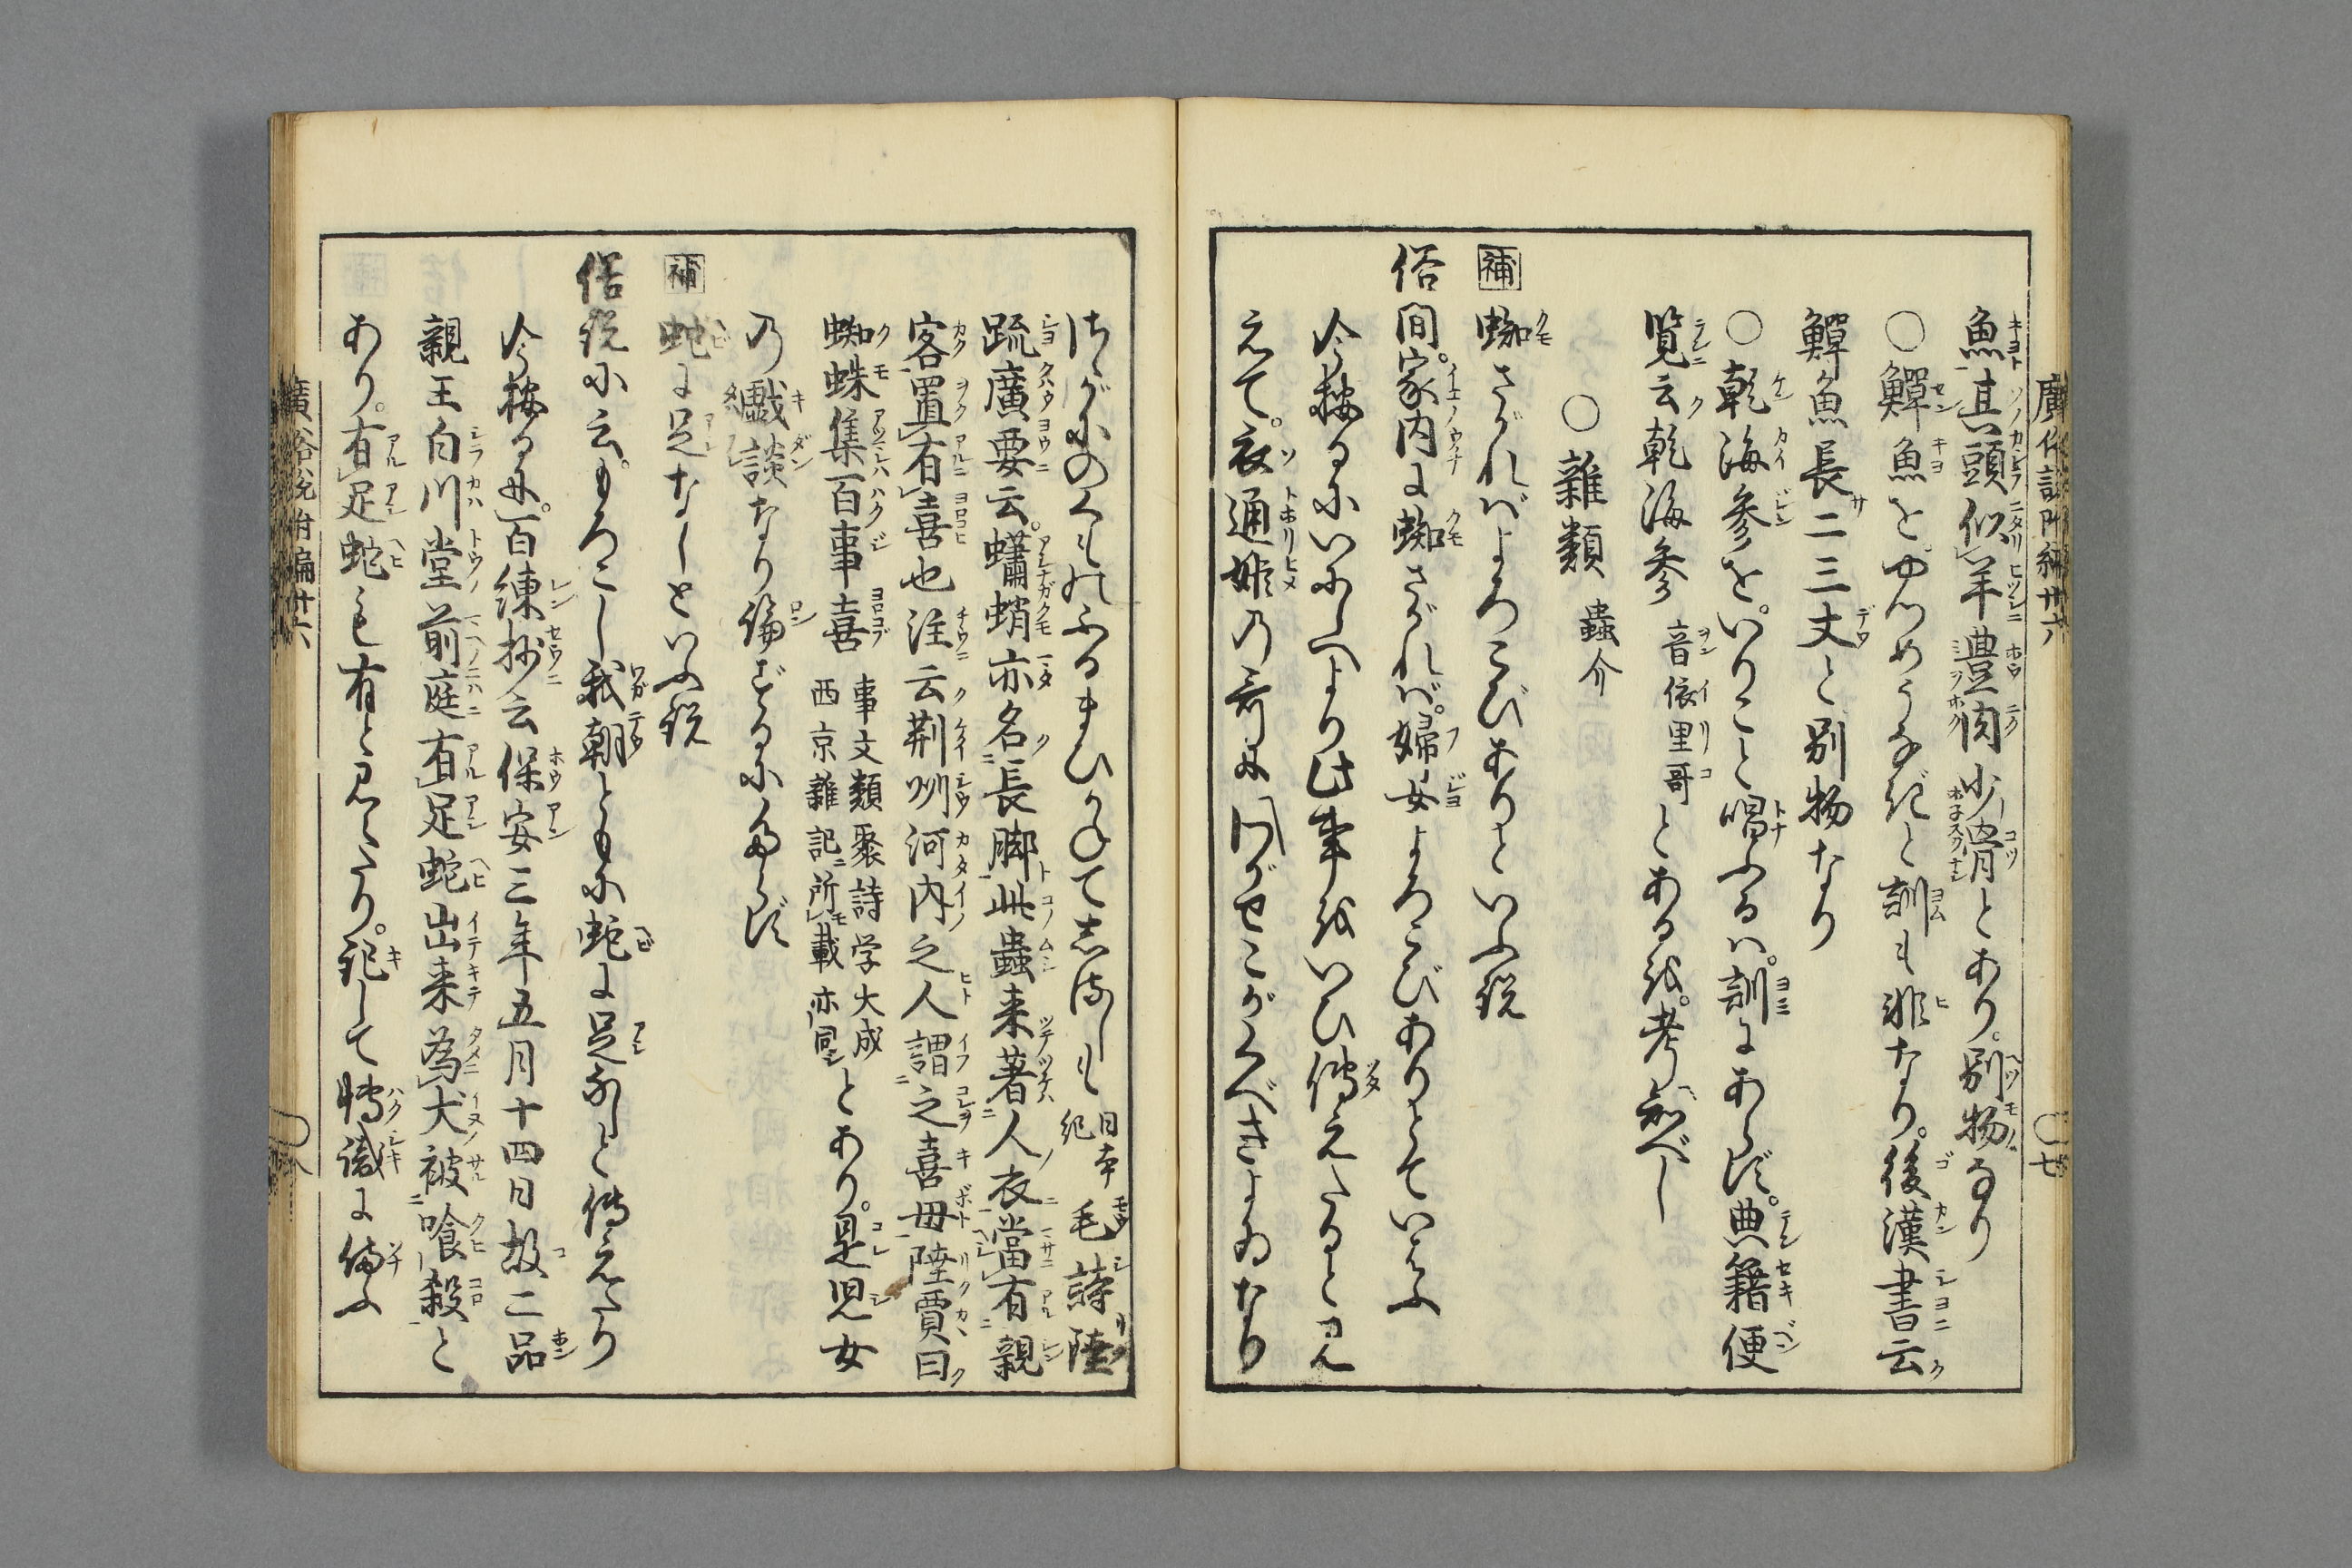 廣俗説附編廿六
魚其頭似羊豊肉少骨とあり。別物なり
○鱓魚をやつめうなぎと訓も非なり。後漢書云
鱓魚長二三丈と別物なり
○乾海参を。いりこと唱ふるハ。訓にあらず。典籍便
覧云乾海参音依里哥とある故。考知べし
○雑類 蟲介
補 蜘さがればよろこびありといふ説
俗間。家内に蜘さがれば。婦女よろこびありとていはふ
今按るにいにしへより此事をいひ傳えたると見
えて。衣通姫乃哥に
わがせこがくべきよゐなり
さゝがにのくものふるまひかねてしるしも 日本紀 毛詩陸
疏廣要云。蠨蛸亦名長脚此蟲来著人衣當有親
客置有喜也注云荆州河内之人謂之喜母陸賈曰
蜘蛛集百事喜 事文類聚詩学大成西京雜記所載亦同 とあり。是児女
乃戯談なり論ずるにたらず
補 蛇に足なしといふ説
俗説に云。もろこし我朝ともに蛇に足なしと傳えたり
今按るに。百練抄云保安三年五月十四日故二品
親王白川堂前庭有足蛇出来為犬被喰殺と
あり。有足蛇も有と見えたり。記して博識に備ふ
廣俗説附編廿六